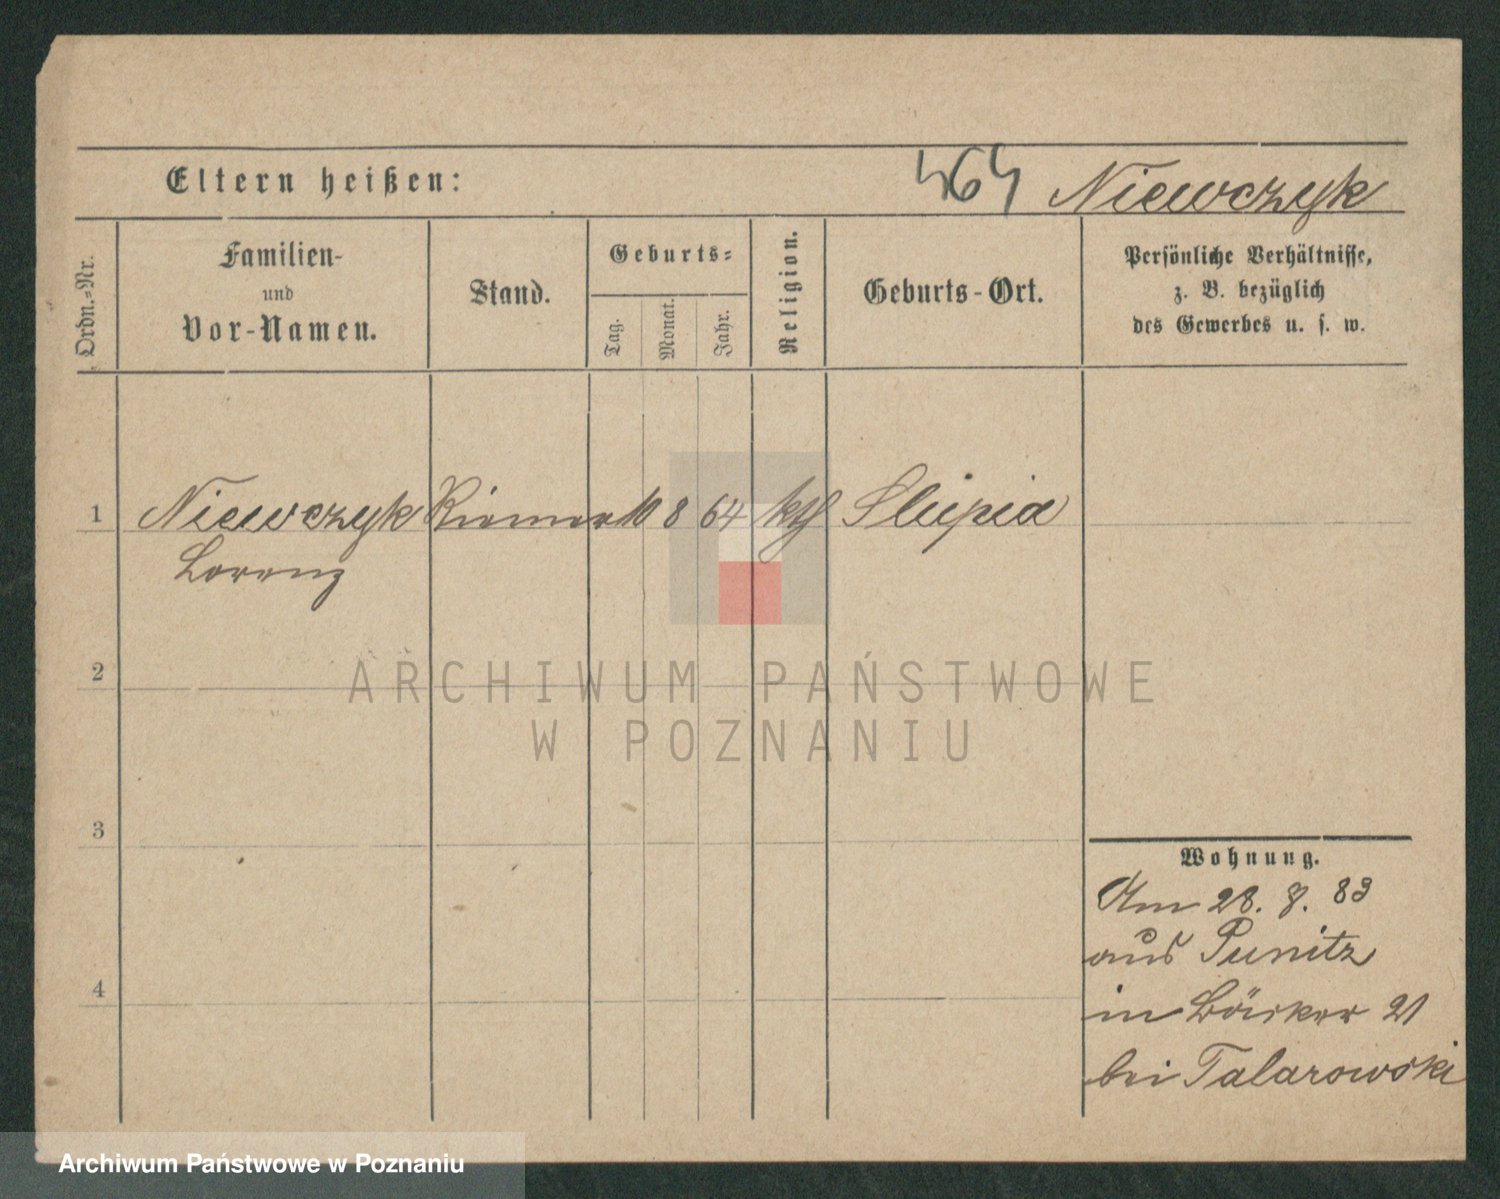 Eltern heißen:
464 Niewczyk
Ordn.-Nr.
Familien-
und
Vor-Namen.
Stand.
Geburts-
Tag.
Monat.
Jahr.
Religion.
Geburts-Ort.
Persönliche Verhältnisse,
z. B. bezüglich
des Gewerbes u. s. w.
1 Niewczyk Riemer 10 8 64 kth Slupia
Lorenz
2
3
4
Wohnung.
Am 28. 8. 83
aus Punitz
in Bäcker 21
bei Talarowski
ARCHIWUM PAŃSTWOWE
W POZNANIU
Archiwum Państwowe w Poznaniu